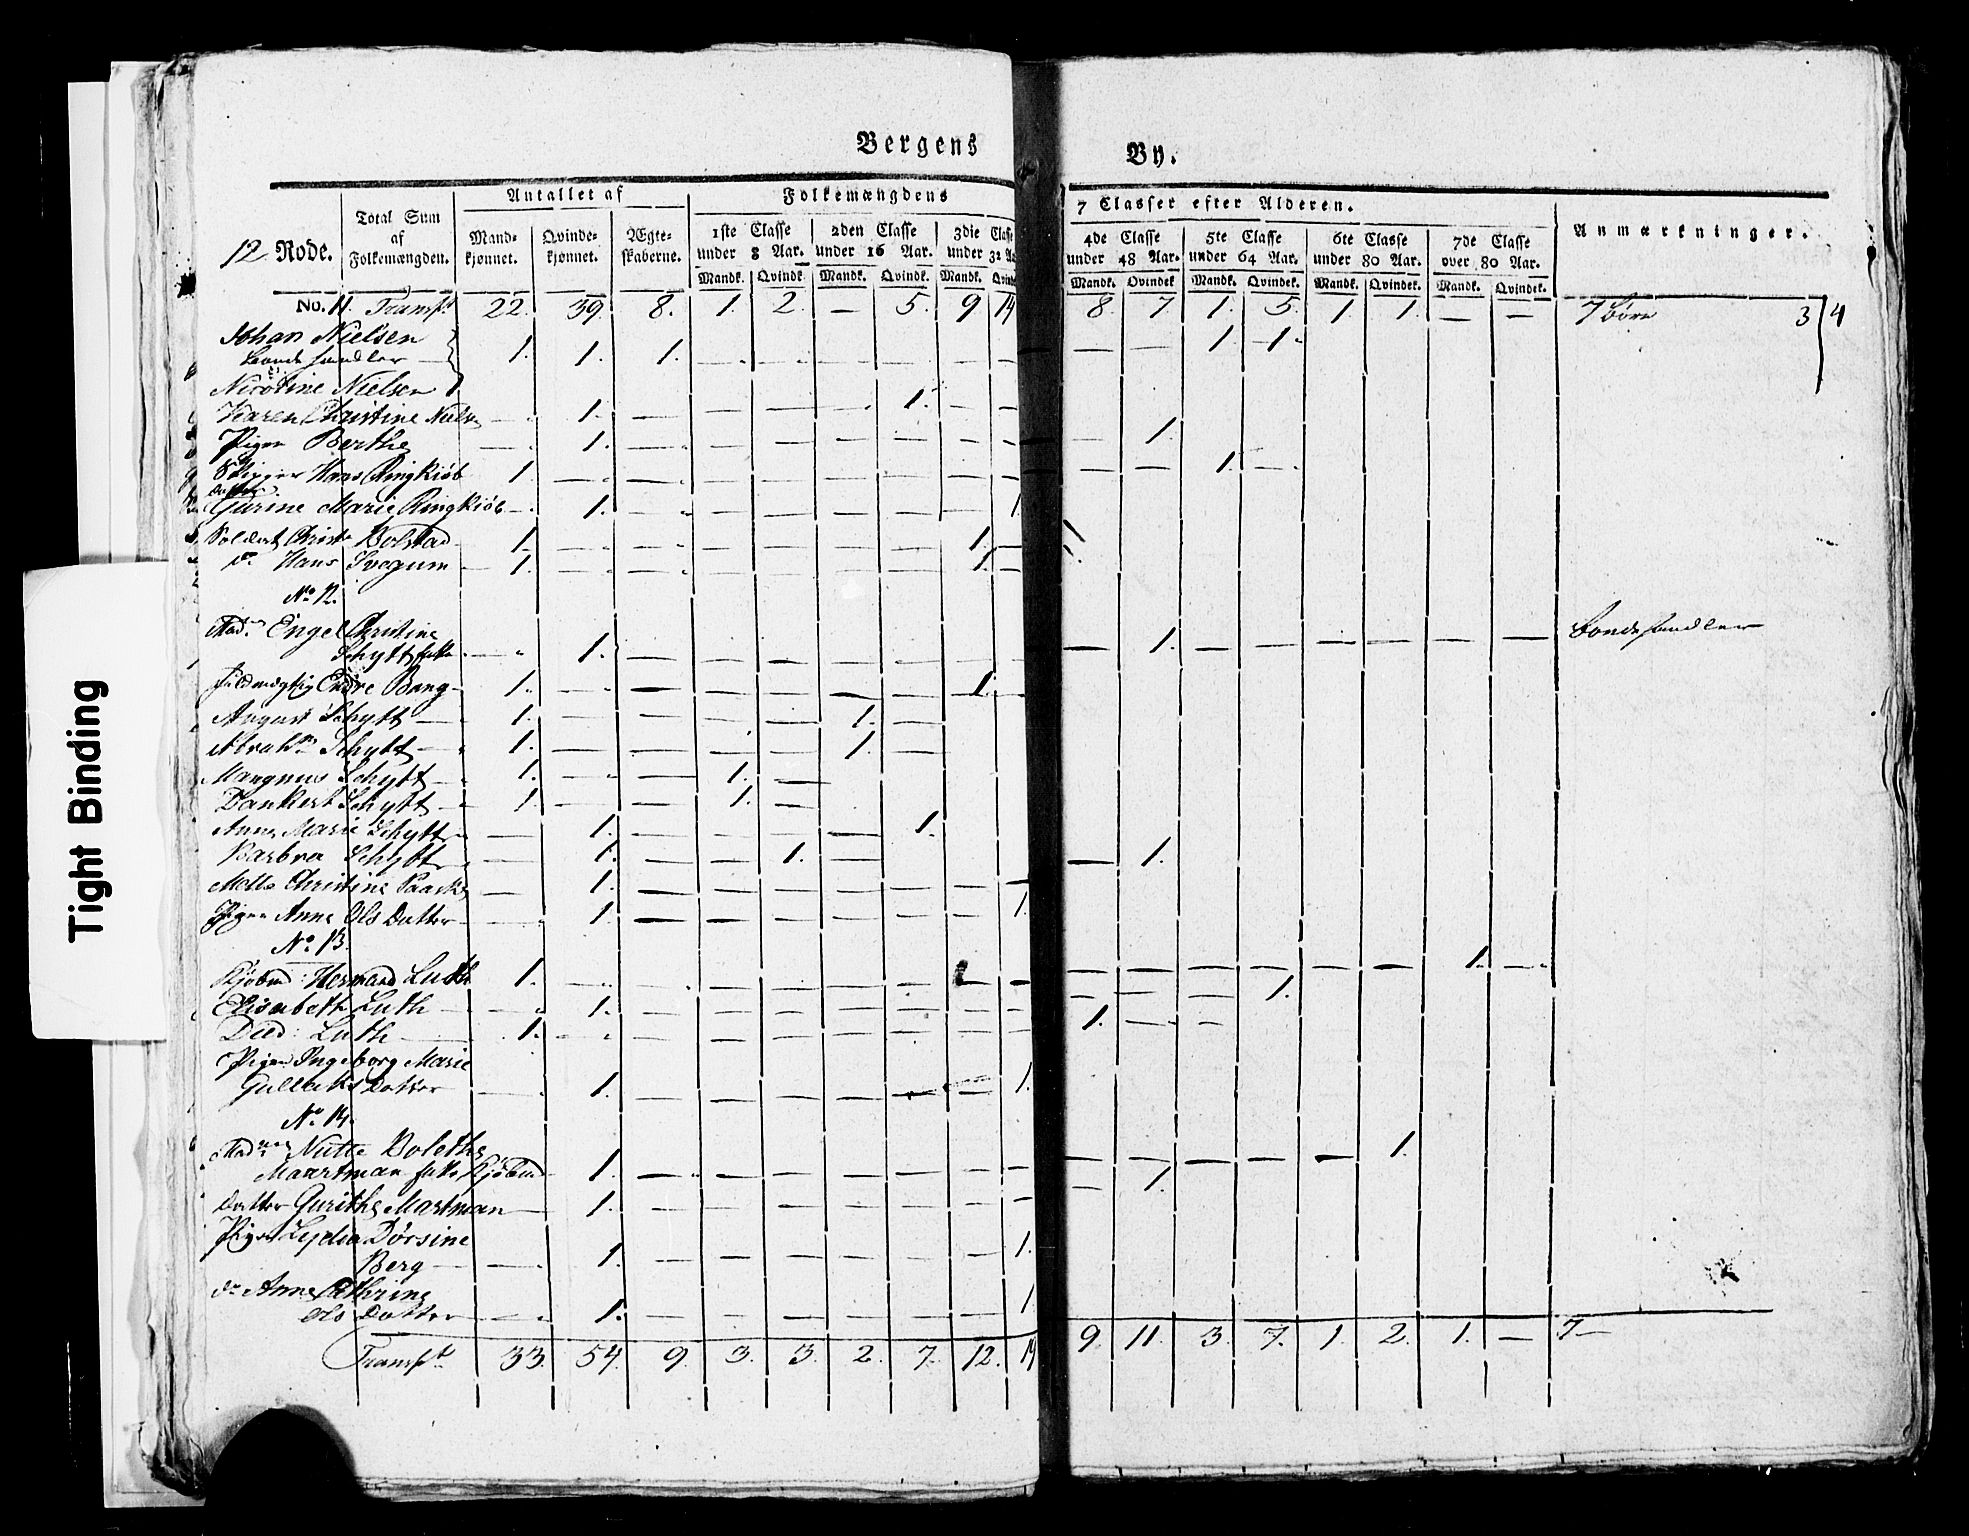 Tight Binding
Bergens By.
12 Rode.
Total Sum af Folkemængden.
Antallet af
Mandkjønnet. Qvindekjønnet. Ægteskaberne.
Folkemængdens 7 Classer efter Alderen.
1ste Classe under 8 Aar. 2den Classe under 16 Aar. 3die Classe 4de Classe under 48 Aar. 5te Classe under 64 Aar. 6te Classe under 80 Aar. 7de Classe over 80 Aar.
Anmærkninger.
Mandk. Qvindk. Mandk. Qvindk. Mandk. Mandk. Qvindek Mandk. Qvindek. Mandk. Qvindek. Mandk. Qvindek.
No. 11. Transpt 22. 39. 8. 1. 2. — 5. 9 14 8. 7. 1. 5. 1 1. — — 7 3/4
Johan Nielsen
1. 1. 1. — — — — — — — — 1. 1.
Nicoline Nielsen
Karen Christine Niels — 1. — — — — 1. — —
Pigen Berthe — 1. — — — — — — — — 1.
Skipper Hans Ringkiøb 1. — — — — — — — — — — 1. —
Datter
Gurine Marie Ringkiøb — 1. — — — — — — 1.
Soldat Christ Bolstad 1. — — — — — — 1. —
do Hans 1. — — — — — — 1. —
No 12.
Mad. Engel Christine
Schytt — 1. — — — — — — — — 1. — — — — — — Bondehandler
Fuldmægtig Endre Bang 1. — — — 1. —
August Schytt 1. — — — — 1. —
Abrahm Schytt 1. — — — — 1. —
Mangnus Schytt 1. — — 1. —
Dankert Schytt 1 — — 1. —
Anne Marie Schytt — 1. — — — — 1.
Barbra Schytt — 1. — — 1. —
Mette Christine — 1. — — — — — — — — 1.
Pigen Anne Ols Datter — 1. — — — — — — 1.
No. 13.
Kjøbmd: Hermand Luth 1. — — — — — — — — — — — — — — 1. —
Elisabeth Luth — 1. — — — — — — — — — — 1.
Died: Luth 1. — — — — — — — — 1. — —
Pigen Ingeborg Marie
Gullaks Datter — 1. — — — — — — 1.
No. 14.
Madme Bolethe
Maartman Kjøbmd 1. — — — — — — — — — — — — 1.
Datter Gurithe Martman — 1. — — — — — — — — 1.
Pigen Lydia Dørsine
Berg — 1. — — — — — — 1.
do Anne Cathrine
Ols Datter — 1. — — — — — — 1
Transpt 33. 54. 9. 3. 3. 2. 7. 12. 19 9. 11. 3. 7. 1. 2. 1. — 7—